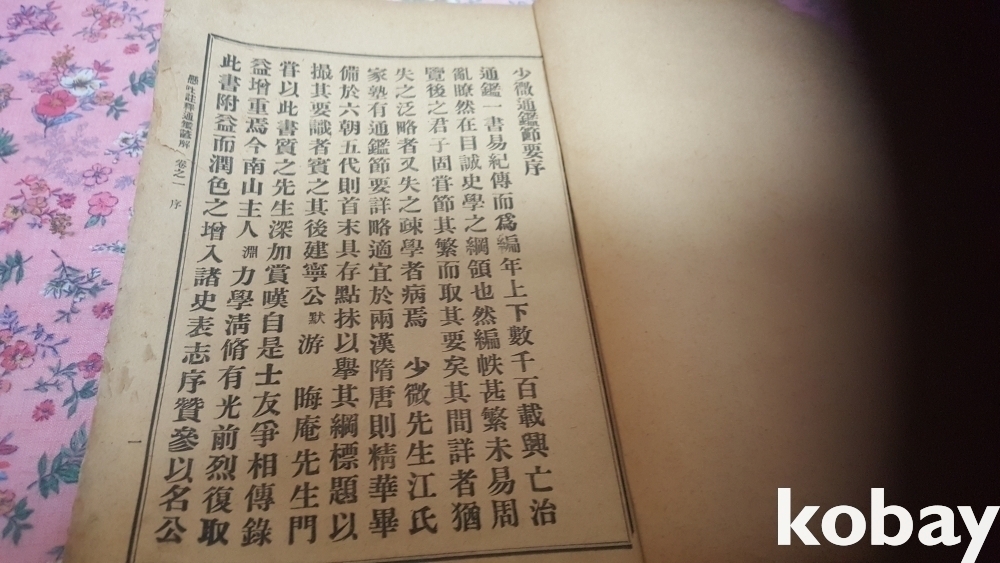 少微通鑑節要序
通鑑一書易紀傳而爲編年上下數千百載興亡治
亂瞭然在目誠史學之綱領也然編帙甚繁未易周
覽後之君子固甞節其繁而取其要矣其間詳者猶
失之泛略者又失之疎學者病焉 少微先生江氏
家塾有通鑑節要詳略適宜於兩漢隋唐則精華畢
備於六朝五代則首末具存點抹以舉其綱標題以
撮其要識者寳之其後建寧公默游 晦庵先生門
甞以此書質之先生深加賞嘆自是士友爭相傳錄
益增重焉今南山主人淵力學淸脩有光前烈復取
此書附益而潤色之增入諸史表志序贊參以名公
懸吐註釋通鑑諺解 卷之一 序
一
kobay